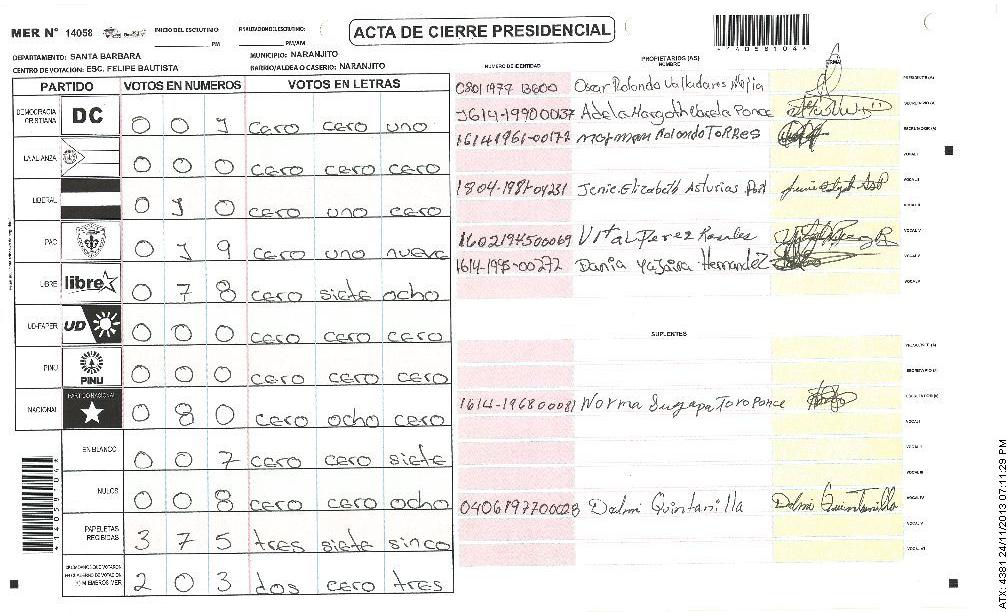 MER N° 14058
INICIO DEL ESCRUTINIO
PM
PM/AM
ACTA DE CIERRE PRESIDENCIAL
*14058104*
DEPARTAMENTO: SANTA BARBARA
MUNICIPIO: NARANJITO
CENTRO DE VOTACION: ESC. FELIPE BAUTISTA
BARRIO/ALDEA O CASERIO: NARANJITO
PARTIDO VOTOS EN NUMEROS VOTOS EN LETRAS
DEMOCRACIA CRISTIANA DC 0 0 1 cero cero uno
LA ALIANZA 0 0 0 cero cero cero
LIBERAL 0 1 0 cero uno cero
PAC 0 1 9 cero uno nueve
LIBRE libre 0 7 8 cero siete ocho
UD-FAPER UD 0 0 0 cero cero cero
PINU PINU 0 0 0 cero cero cero
NACIONAL PARTIDO NACIONAL 0 8 0 cero ocho cero
EN BLANCO 0 0 7 cero cero siete
NULOS 0 0 8 cero cero ocho
PAPELETAS RECIBIDAS 3 7 5 tres siete sinco
2 0 3 dos cero tres
NUMERO DE IDENTIDAD
PROPIETARIOS (AS)
NOMBRE
FIRMA
0801 1977 13600 Oscar Rolondo Valladares Mejia PRESIDENTE (A)
1614-1990 00137 Adela Margoth Varela Ponce SECRETARIO (A)
16141961-00172 Rolondo TORRES ESCRUTADOR (A)
VOCAL I
Jenie Elizabeth Asturias VOCAL II
VOCAL III
1602194500069 Vital Perez Rosales VOCAL IV
1614-1995-00272 Dania Yajaira Hernandez VOCAL V
SUPLENTES
PRESIDENTE (A)
SECRETARIO (A)
1614-196800081 Norma Suyapa Toro Ponce ESCRUTADOR (A)
VOCAL I
VOCAL II
VOCAL III
0406197700028 Dalmi Quintanilla Dalmi Quintanilla VOCAL IV
VOCAL V
VOCAL VI
ATX: 4381 24/11/2013 07:11:29 PM